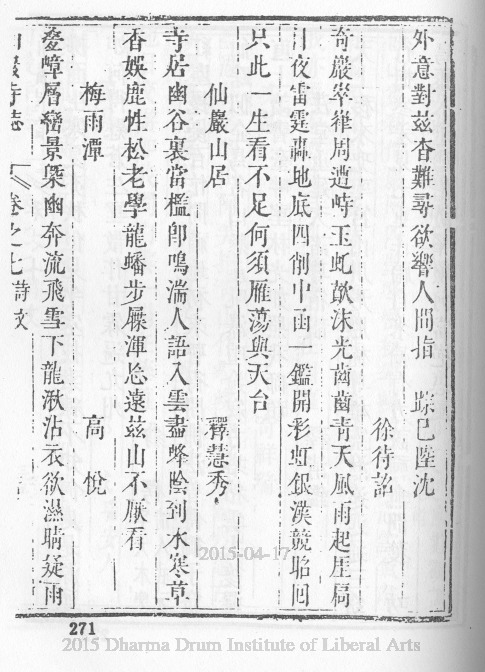 外意對茲杳難尋欲響人間指 踪已陸沈
徐待詔
奇巖崒嵂周遭峙玉虬歕沫光齒齒青天風雨起厓扃
日夜雷霆轟地底四削中函一鑑開彩虹銀漢競昭回
只此一生看不足何須雁蕩與天台
仙巖山居 釋慧秀
寺居幽谷裏當檻卽鳴湍人語入雲盡蜂陰到水寒草
香娛鹿性松老學龍蟠步屧渾忘遠茲山不厭看
梅雨潭 高悅
疊嶂層巒景槩幽奔流飛雪下龍湫沾衣欲濕晴疑雨
巖寺志 卷之七詩文
271
2015-04-17
2015 Dharma Drum Institute of Liberal Arts